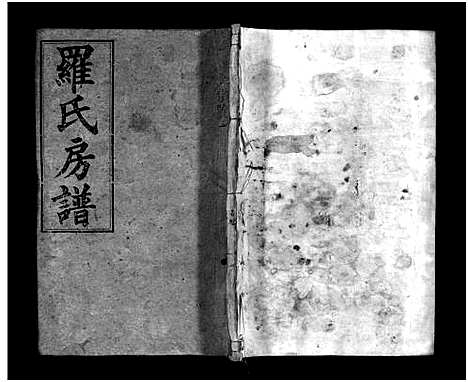 羅氏房譜